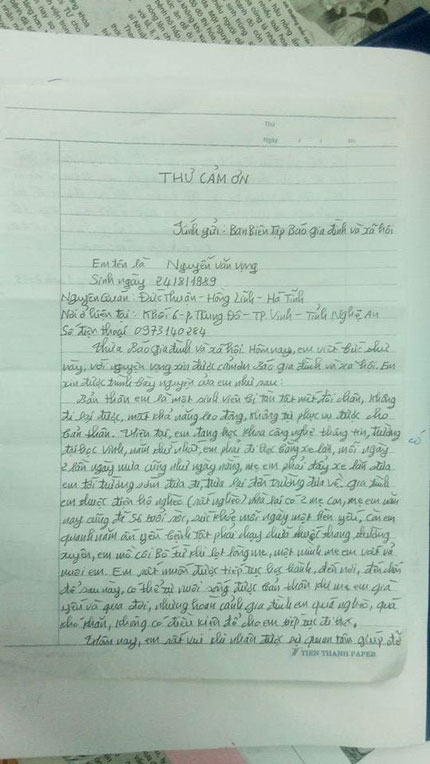 Thứ
Ngày
THƯ CẢM ƠN
Kính gửi: Ban Biên Tập Báo gia đình và xã hội
Em tên là Nguyễn văn vụng
Sinh ngày 24/8/1989
Nguyên Quán: Đức Thuận - Hồng Lĩnh - Hà Tĩnh
Nơi ở hiện tại: Khối 6 - p. Trung Đô - TP. Vinh - Tỉnh Nghệ An
Số điện thoại 0973140284
Thưa Báo gia đình và xã hội. Hôm nay, em viết bức thư
này, với nguyện vọng xin được cảm ơn Báo gia đình và xã hội. Em
xin được trình bày nguyện của em như sau:
Bản thân em là một sinh viên bị tàn tật mất đôi chân, không
đi lại được, mất khả năng lao động, không tự phục vụ được cho
bản thân. Hiện tại, em đang học khoa công nghệ thông tin, trường
đại học Vinh, năm thứ nhất, em phải đi học bằng xe lăn, mỗi ngày
2 lần ngày mưa cũng như ngày nắng, mẹ em phải đẩy xe lăn đưa
em tới trường sớm đưa đi, trưa lại đến trường đưa về. gia đình
em thuộc diện hộ nghèo (rất nghèo) nhà lại có 2 mẹ con, mẹ em năm
nay cũng đã 56 tuổi rồi, sức khỏe mỗi ngày một yếu, còn em
quanh năm ốm yếu bệnh tật phải chạy chữa thuốc thang thường
xuyên, em mồ côi Bố từ khi lọt lòng mẹ, một mình mẹ em vất vả
nuôi em. Em rất muốn được tiếp tục học hành, đến nơi, đến chốn
để sau này, có thể tự nuôi sống được bản thân khi mẹ em già
yếu và qua đời, nhưng hoàn cảnh gia đình em quá nghèo, quá
khó khăn, không có điều kiện để cho em tiếp tục đi học.
Hôm nay, em rất vui khi nhận được sự quan tâm giúp đỡ
có
TIEN THANH PAPER